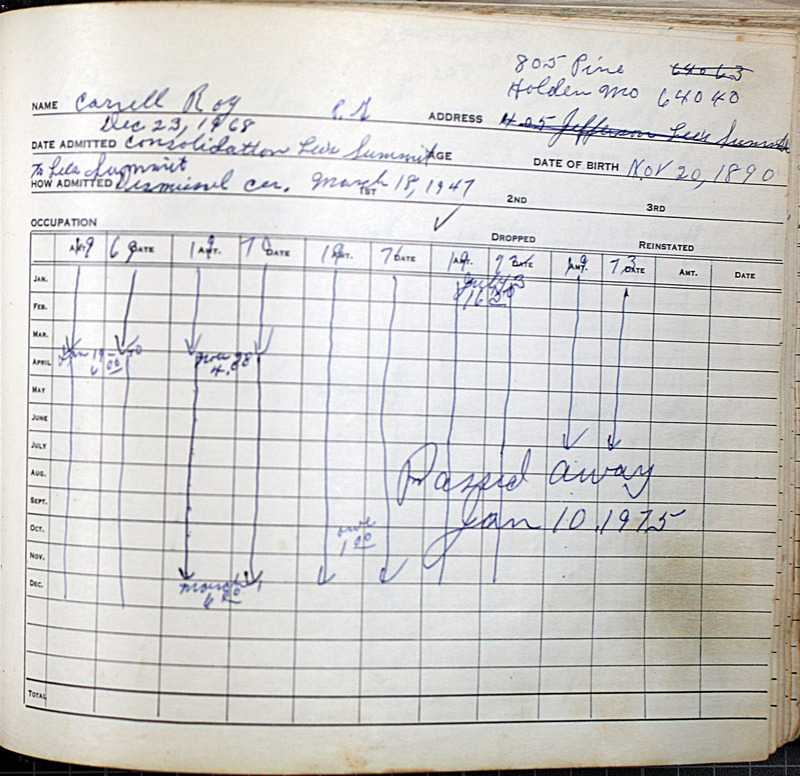 805 Pine 64063
Holden Mo 64040
NAME Carrell Roy ADDRESS 405 Jefferson Lees Summit
Dec 23, 1968
DATE ADMITTED Consolidation Lees Summit AGE DATE OF BIRTH Nov 20, 1890
To Lees Summit
HOW ADMITTED Dismissal cer. March 18, 1947
1ST 2ND 3RD
OCCUPATION DROPPED REINSTATED
AMT. 19 69 DATE 19 AMT. 70 DATE 19 AMT. DATE 19 AMT. 72 DATE 19 AMT. 73 DATE AMT. DATE
JAN.
16.50
FEB.
MAR.
APRIL 6.00 4.00
MAY
JUNE
JULY
AUG. Passed away
SEPT.
OCT. owe Jan 10, 1975
1.00
NOV.
DEC. March 1
6.00
TOTAL